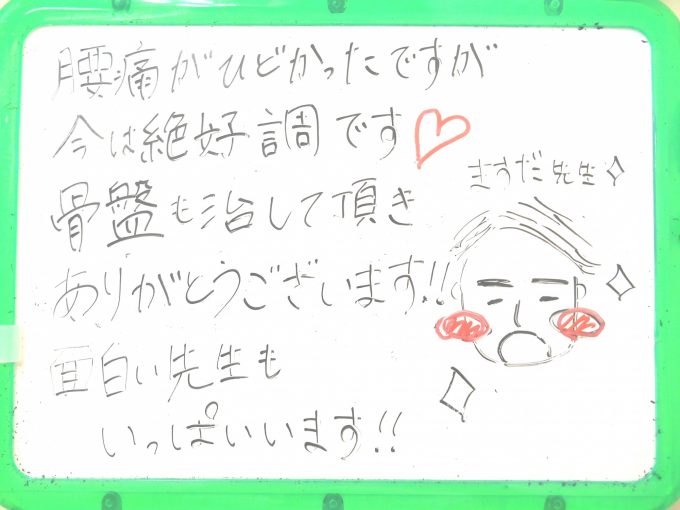 腰痛がひどかったですが
今は絶好調です♡
骨盤も治して頂き
ありがとうございます!!
面白い先生も
いっぱいいます!!
ますだ先生